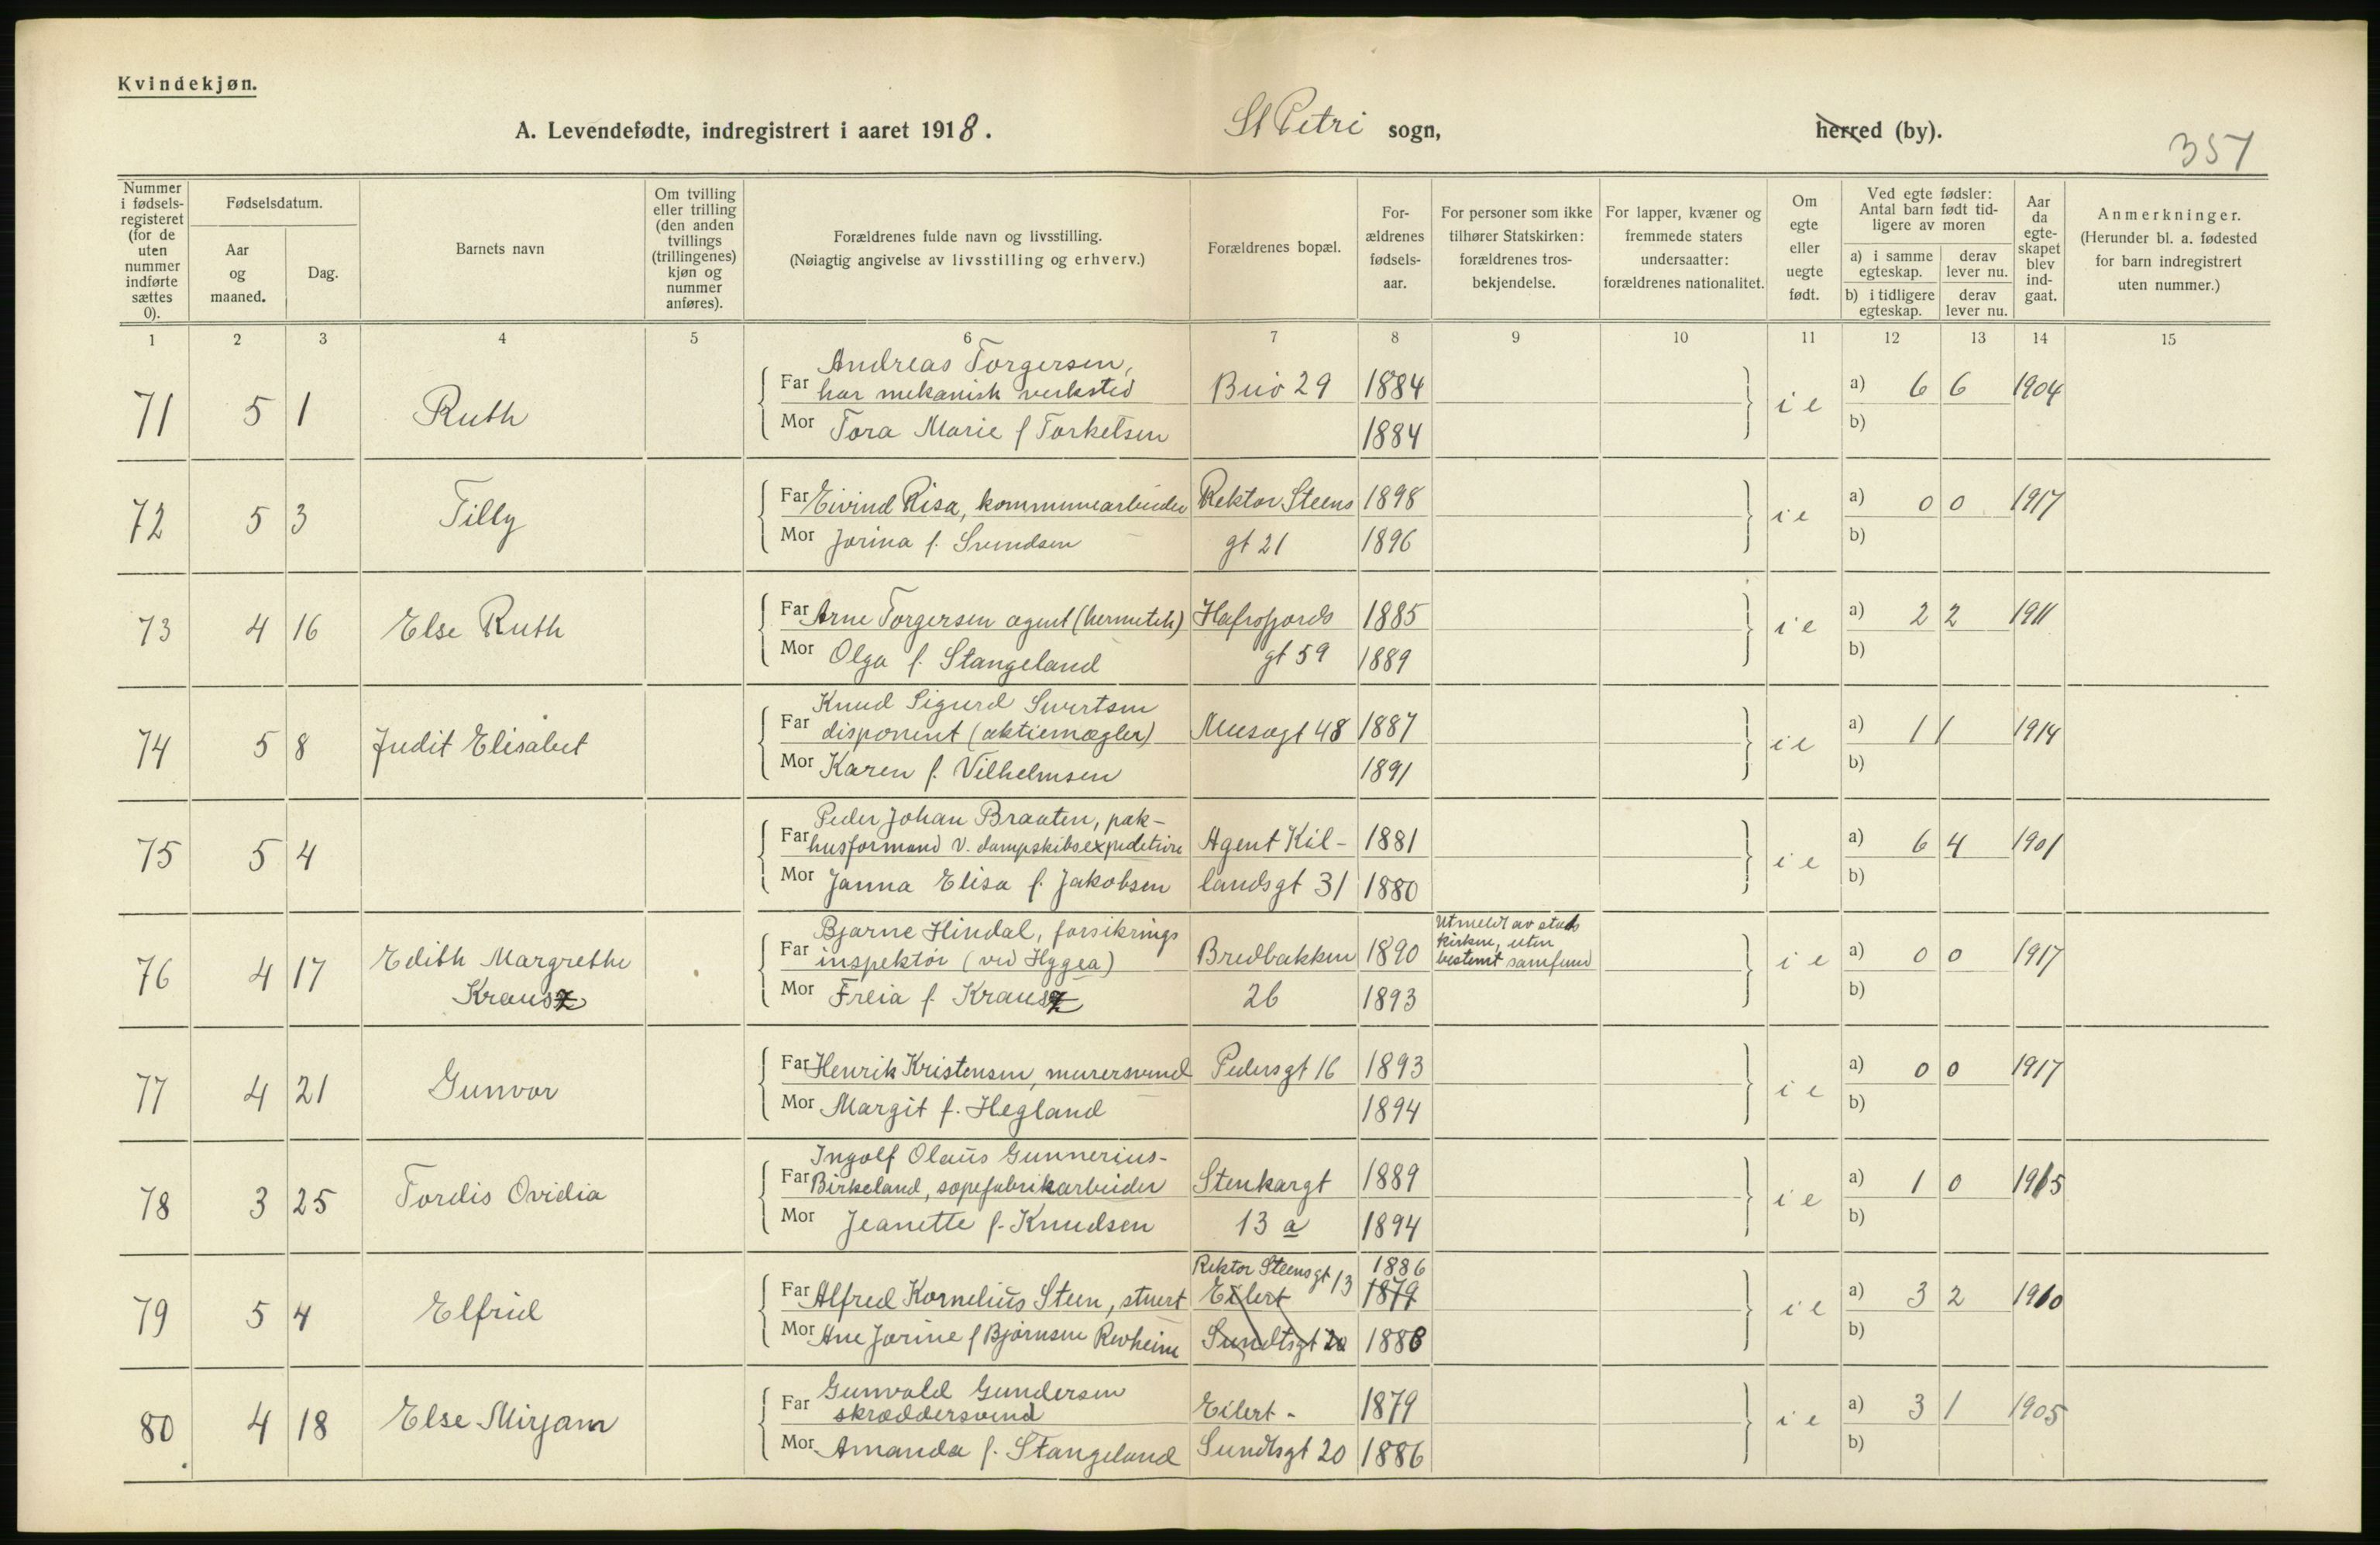 Kvindekjøn.
A. Levendefødte, indregistrert i aaret 1918. St Petri sogn, herred (by).
357
Nummer i fødsels-registeret (for de uten nummer indførte sættes 0).
Fødselsdatum.
Aar og maaned.
Dag.
Barnets navn
Om tvilling eller trilling (den anden tvillings (trillingenes) kjøn og nummer anføres).
Forældrenes fulde navn og livsstilling.
(Nøiagtig angivelse av livsstilling og erhverv.)
Forældrenes bopæl.
For-ældrenes fødsels-aar.
For personer som ikke tilhører Statskirken: forældrenes tros-bekjendelse.
For lapper, kvæner og fremmede staters undersaatter: forældrenes nationalitet.
Om egte eller uegte født.
Ved egte fødsler: Antal barn født tid-ligere av moren
a) i samme egteskap. derav lever nu.
b) i tidligere egteskap. derav lever nu.
Aar da egte-skapet blev ind-gaat.
Anmerkninger.
(Herunder bl. a. fødested for barn indregistrert uten nummer.)
1 2 3 4 5 6 7 8 9 10 11 12 13 14 15
Andreas Torgersen,
71 5 1 Ruth Far har mekanisk verksted Buø 29 1884 i e a) 6 6 1904
Mor Tora Marie f Torkelsen 1884 b)
72 5 3 Tilly Far Eivind Risa, kommunearbeider Rektor Steens 1898 i e a) 0 0 1917
Mor Jorina f. Svendsen gt 21 1896 b)
73 4 16 Else Ruth Far Arne Torgersen agent (hermetik) Hafrsfjords 1885 i e a) 2 2 1911
Mor Olga f. Stangeland gt 59 1889 b)
Knud Sigurd Sivertsen
74 5 8 Judit Elisabet Far disponent (aktiemægler) Musægt 48 1887 i e a) 1 1 1914
Mor Karen f. Vilhelmsen 1891 b)
Peder Johan Braaten, pak-
75 5 4 Far husformand v. dampskibsexpedition Agent Kiel- 1881 i e a) 6 4 1901
Mor Janna Elisa f. Jakobsen landsgt 31 1880 b)
Bjarne Hindal, forsikrings Utmeldt av stats
76 4 17 Edith Margrethe Far inspektør (ved Hygea) Bredbakken 1890 kirken, uten bestemt samfund i e a) 0 0 1917
Krausz Mor Freia f. Krausz 26 1893 b)
77 4 21 Gunvor Far Henrik Kristensen, murersvend Pedersgt 16 1893 i e a) 0 0 1917
Mor Margit f. Hegland 1894 b)
Ingolf Olaus Gunnerius-
78 3 25 Tordis Ovidia Far Birkeland, sæpefabrikarbeider Stenkargt 1889 i e a) 1 0 1915
Mor Jeanette f. Knudsen 13 a 1894 b)
Rektor Steensgt 13 1886
79 5 4 Elfrid Far Alfred Kornelius Steen, stuert Eilert 1879 i e a) 3 2 1910
Mor Ane Jorine f Bjørnsen Revheim Sundtsgt 20 1888 b)
Gunvald Gundersen
80 4 18 Else Mirjam Far skræddersvend Eilert- 1879 i e a) 3 1 1905
Mor Amanda f. Stangeland Sundtsgt 20 1886 b)